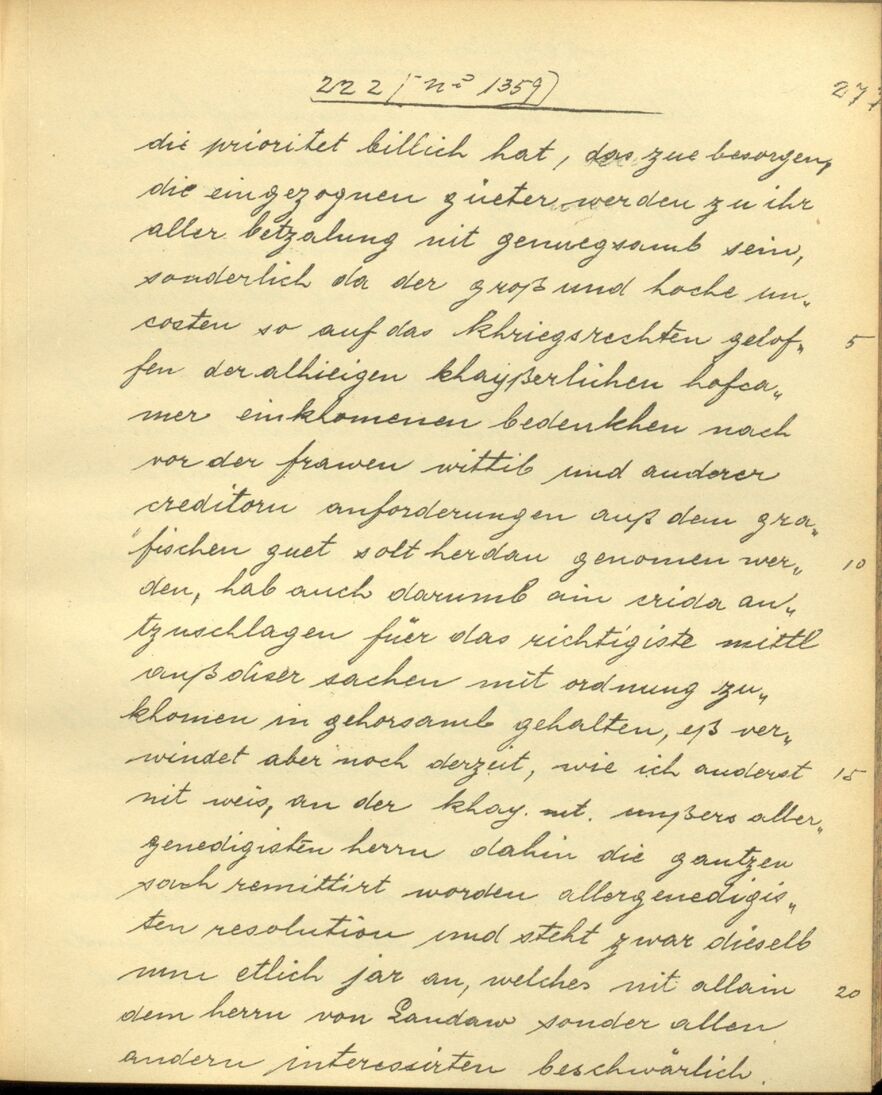 222 (nº 1359)
277
die prioritet billich hat, das zue besorgen,
die eingezognen güeter werden zu ihr
aller betzalung nit genuegsamb sein,
sonderlich da der groß und hoche un„
costen so auf das khriegsrechten gelof„ 5
fen der alhieigen khayßerlichen hofca„
mer einkhomenen bedenkhen nach
vor der frawen wittib und anderer
creditorn anforderungen auß dem gra„
fischen guet solt herdan genomen wer„ 10
den, hab auch darumb ain crida an„
tzuschlagen füer das richtigiste mittl
auß diser sachen mit ordnung zu„
khomen in gehorsamb gehalten, eß ver„
windet aber noch derzeit, wie ich anderst 15
nit weis, an der khay. mt. unßers aller„
genedigisten herrn dahin die gantzen
sach remittirt worden allergenedigis„
ten resolution und steht zwar dieselb
nun etlich jar an, welches nit allain 20
dem herrn von Landaw sonder allen
andern interessirten beschwärlich.